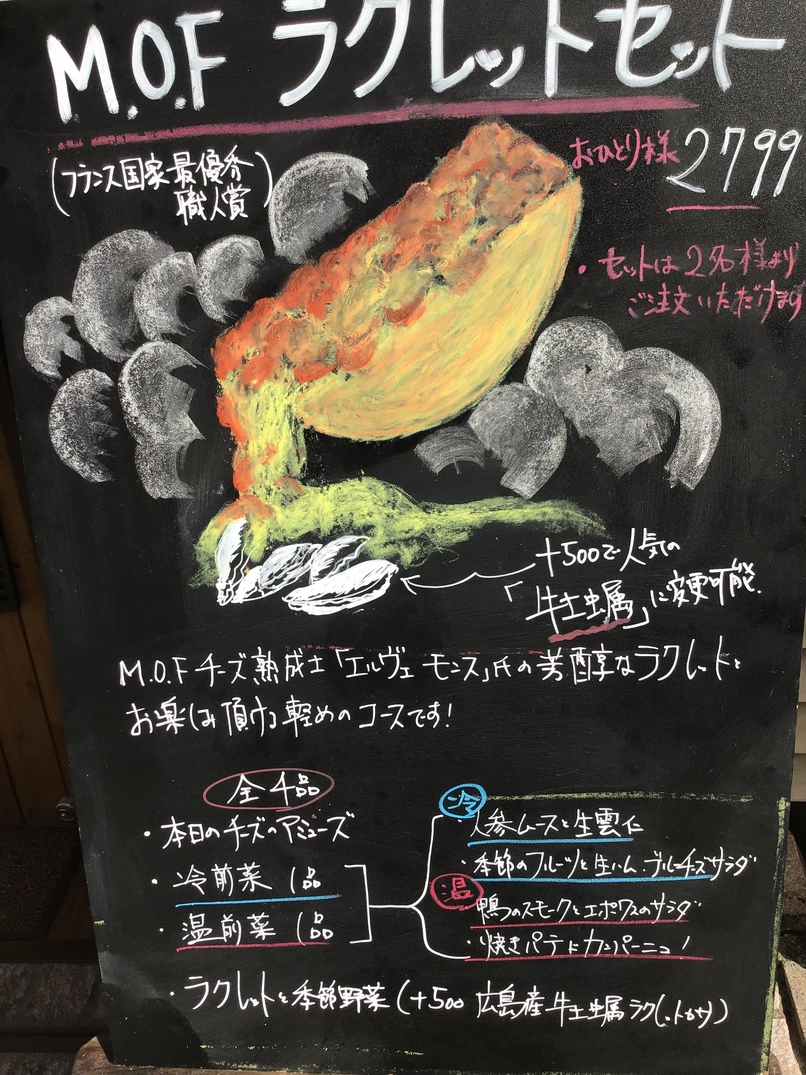 M.O.F ラクレットセット
(フランス国家最優秀
職人賞)
おひとり様 2799
・セットは2名様より
ご注文いただけます
+500で人気の
「牡蠣」に変更可能.
M.O.Fチーズ熟成士「エルヴェ モンス」氏の芳醇なラクレットを
お楽しみ頂ける軽めのコースです!
全4品
・本日のチーズのアミューズ
・冷前菜 1品
・温前菜 1品
・ラクレットと季節野菜(+500 広島産牡蠣ラクレットより)
冷
・人参ムースと生雲仁
・季節のフルーツと生ハム、ブルーチーズサラダ
温
・鴨のスモークとエポワスのサラダ
・焼きパテ ド カンパーニュ!